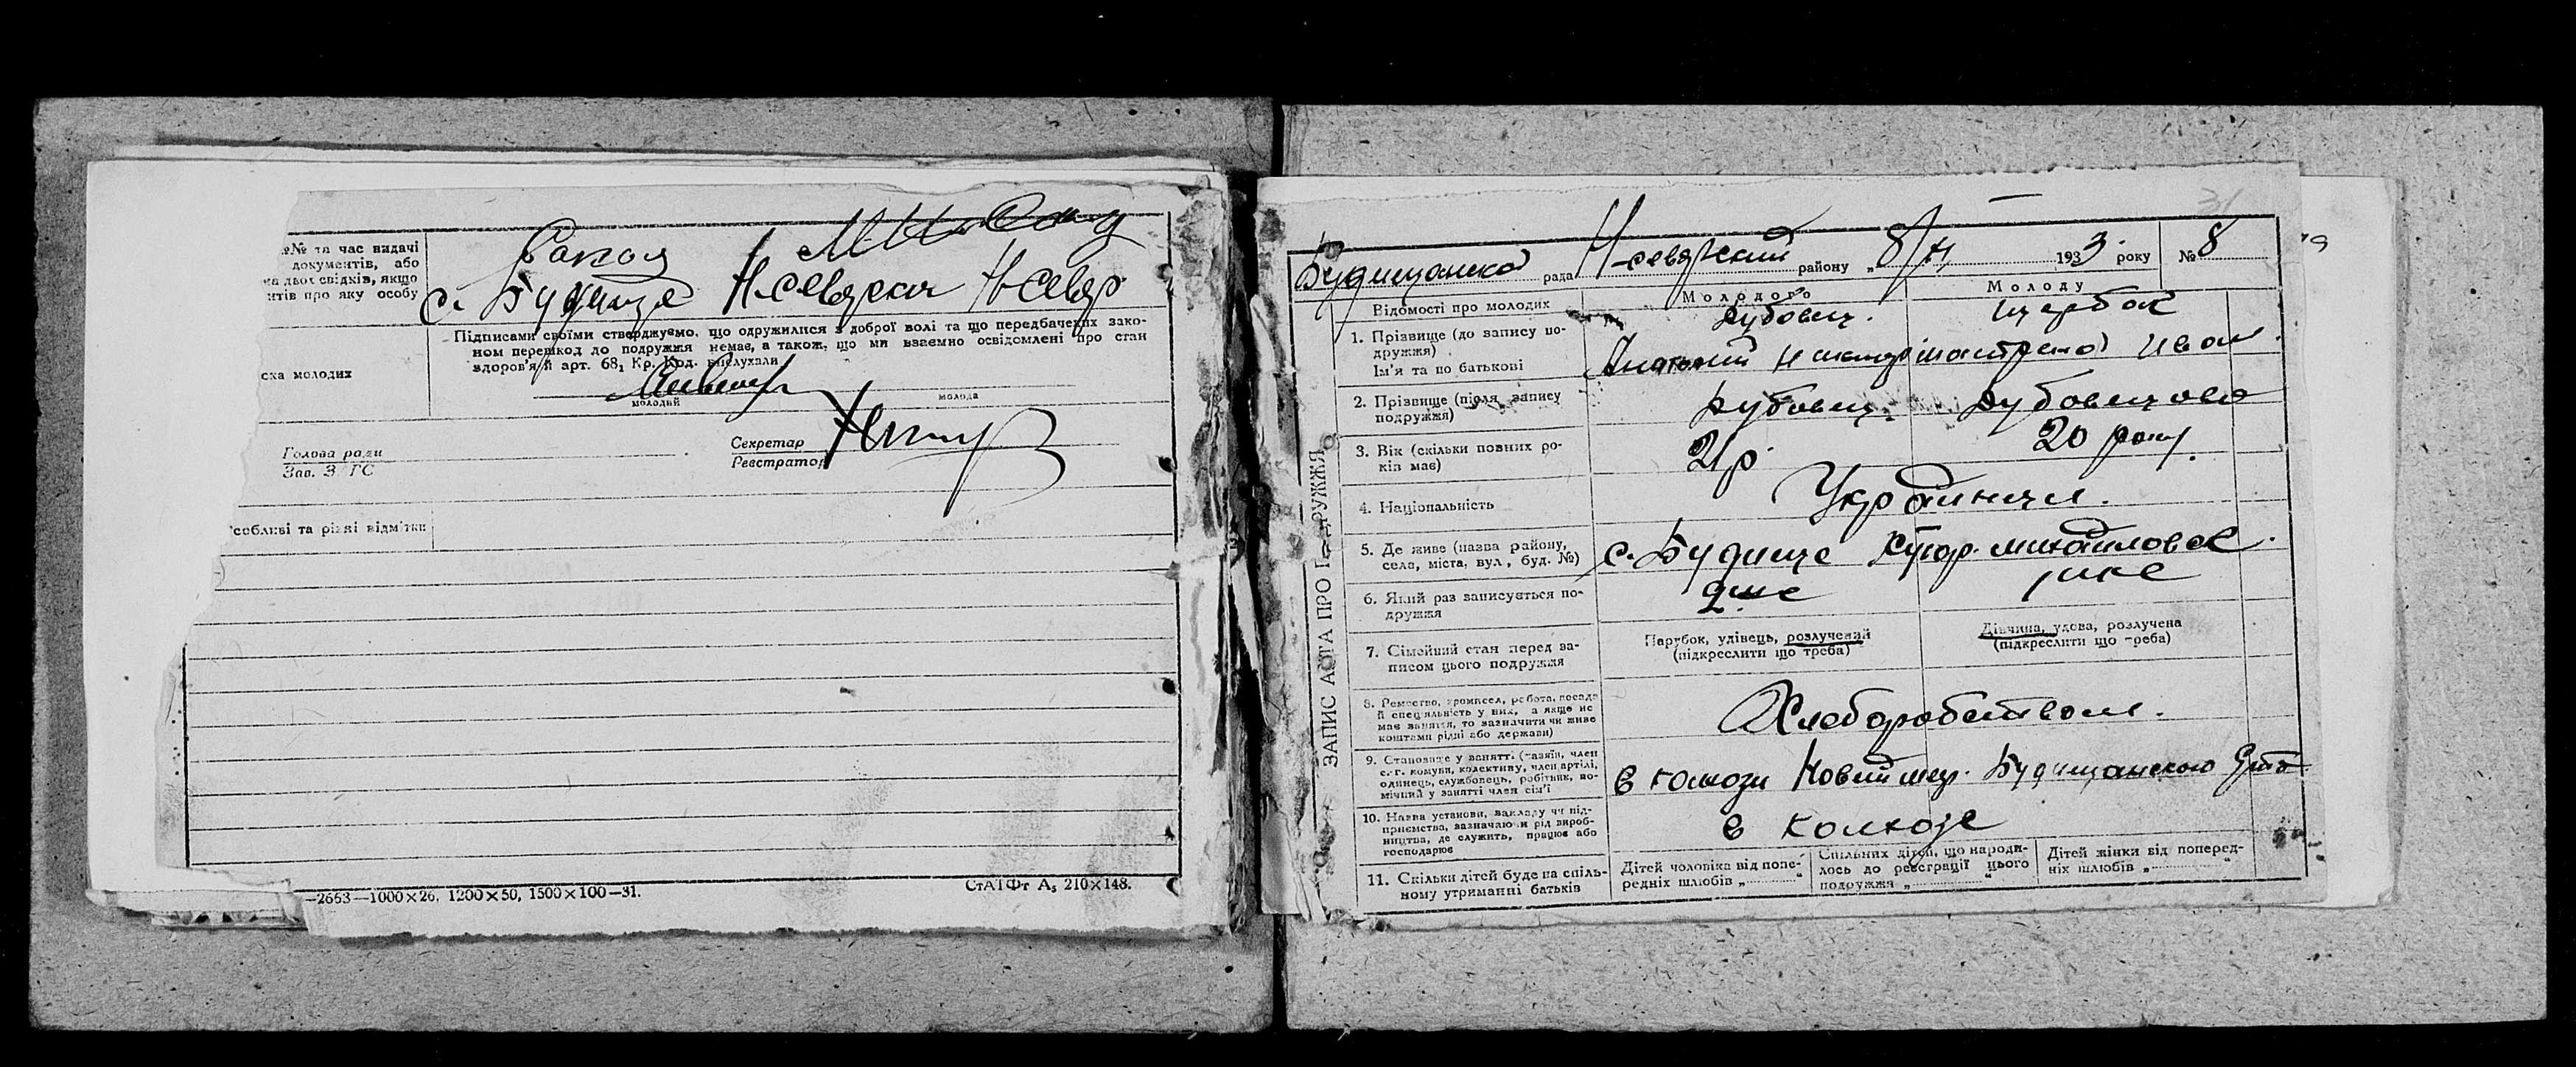 №№ та час видачі
документів, або
на двох свідків, якщо
нтів про яку особу
с. Будище Н-Севдрск Н-Севдр
Підписами своїми стверджуємо, що одружилися з доброї волі та що передбачених зако-
ном перешкод до подружжя немає, а також, що ми взаємно освідомлені про стан
здоров'я й арт. 68, Кр. Код. вислухали
ска молодих
молодий
молода
Голова ради
Зав. З ГС
Секретар
Реєстратор
собливі та різні відмітки
—2663—1000×26, 1200×50, 1500×100—31.
СтАТФт А₅ 210×148.
31
Будищанска рада Н-севдрский району „8/ 1933 року № 8
ЗАПИС АКТА ПРО ПОДРУЖЖЯ
Відомості про молодих
Молодого
Молоду
1. Прізвище (до запису по-
дружжя)
Ім'я та по батькові
Рубовец.
Щербак
Анатолий Иван.
2. Прізвище (після запису
подружжя)
Рубовец.
Рубовецова
3. Вік (скільки повних ро-
ків має)
21 р.
20 року
4. Національність
Украинци.
5. Де живе (назва району,
села, міста, вул., буд. №)
с. Будище
Хутор. михайловск.
6. Який раз записується по-
дружжя
2ше
1ше
7. Сімейний стан перед за-
писом цього подружжя
Парубок, удівець, розлучений
(підкреслити що треба)
Дівчина, удова, розлучена
(підкреслити що треба)
8. Ремество, промисел, робота, посада
й спеціяльність у них, а якщо не
має заняття, то зазначити чи живе
коштами рідні або держави)
Хлеборобством.
9. Становище у занятті (газяїн, член
с.-г. комуни, колективу, член артілі,
одинець, службовець, робітник, по-
мічний у занятті член сім'ї
в колхози Новый Будищанскою
10. Назва установи, закладу чи під-
приємства, зазначаючи рід вироб-
ництва, де служить, працює або
господарює
в колхозе
11. Скільки дітей буде на спіль-
ному утриманні батьків
Дітей чоловіка від попе-
редніх шлюбів „ “
Спільних дітей, що народи-
лось до реєстрації цього
подружжя „ “
Дітей жінки від поперед-
ніх шлюбів „ “